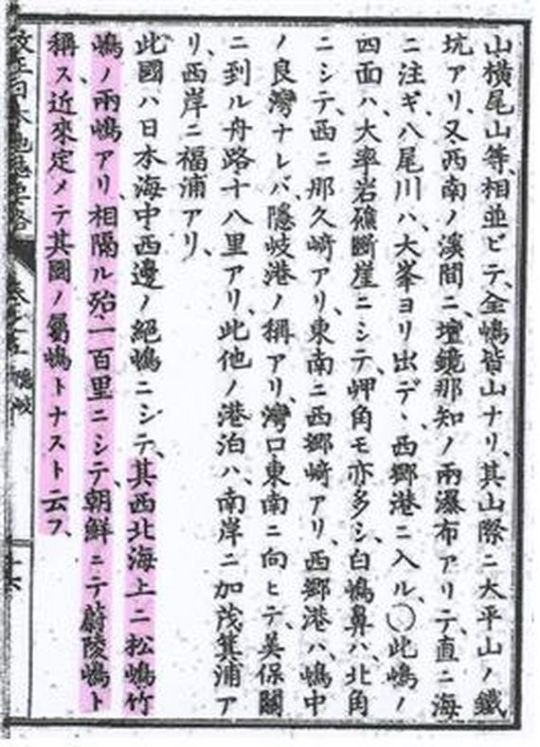 山横尾山等、相並ビテ、全嶋皆山ナリ、其山際ニ大平山ノ鐵
坑アリ、又西南ノ溪間ニ、壇鏡那知ノ兩瀑布アリテ、直ニ海
ニ注ギ、八尾川ハ、大峯ヨリ出デ、西郷港ニ入ル、〇此嶋ノ
四面ハ、大率岩礁斷崖ニシテ、岬角モ亦多シ、白嶋鼻ハ、北角
ニシテ、西ニ那久﨑アリ、東南ニ西郷﨑アリ、西郷港ハ、嶋中
ノ良灣ナレバ、隱岐港ノ稱アリ、灣口東南ニ向ヒテ、美保關
ニ到ル舟路十八里アリ、此他ノ港泊ハ、南岸ニ加茂箕浦ア
リ、西岸ニ福浦アリ、
此國ハ日本海中西邊ノ絕嶋ニシテ、其西北海上ニ松嶋竹
嶋ノ兩嶋アリ、相隔ル殆一百里ニシテ、朝鮮ニテ蔚陵嶋ト
稱ス、近來定メテ其國ノ屬嶋トナスト云フ、
日本地誌要略